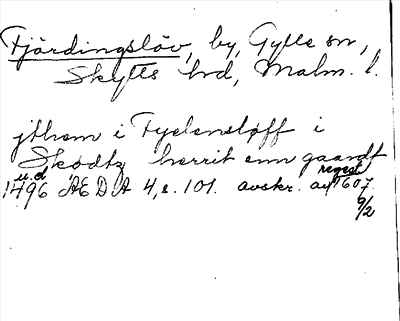 Fjärdingslöv, by, Gylle sn,
Skytts hd, Malm. l.
jthem i Fyelensløff i
Skødtz herrit enn gaardt
u.d. regest
1496 ÆDA 4, s. 101. avskr. av 1607.
9/2